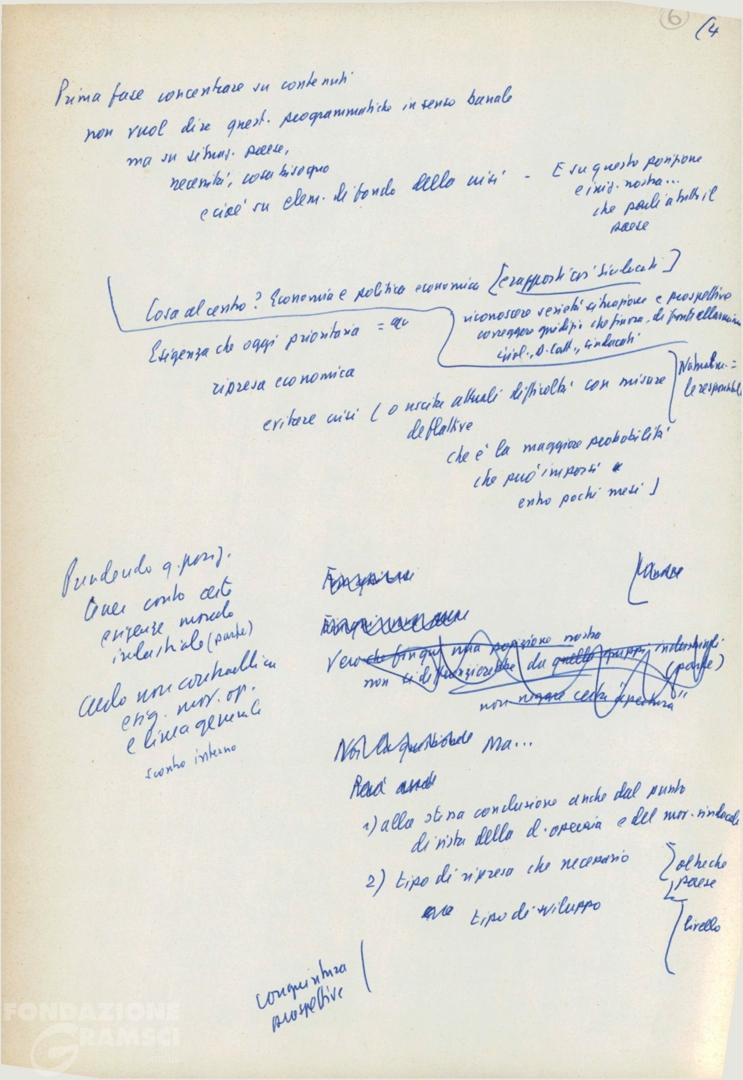 6
(4
Prima fase concentrare su contenuti
non vuol dire quest. programmatiche in senso banale
ma su situaz. paese,
necessità, cosa bisogno
e cioè su elem. di fondo della crisi -
E su questo posizione
e iniz. nostra...
che parli a tutti il
paese
Cosa al centro? Economia e politica economica [e rapporti coi sindacati]
riconoscere serietà situazione e prospettive
correggere giudizi che finora, di fronte
sindacati
Esigenza che oggi prioritaria =
ripresa economica
evitare crisi (o uscita attuali difficoltà con misure
deflattive
che è la maggiore probabilità
che può imporsi
entro pochi mesi)
Naturalm. =
le responsabil
Prendendo q. posiz.
tener conto certe
esigenze mondo
industriale (parte)
credo non contraddica
esig. mov. op.
e linea generale
scontro interno
Vero che fin qui una posizione nostra
non ci differenziava da quella gruppi industriali
(parte)
non negare certa "apertura"
Noi la Ma...
Però
1) alla stessa conclusione anche dal punto
di vista della cl. operaia e del mov. sindacale
2) tipo di ripresa che necessario
oltre che
paese
tipo di sviluppo
livello
congiuntura
prospettive
FONDAZIONE
GRAMSCI